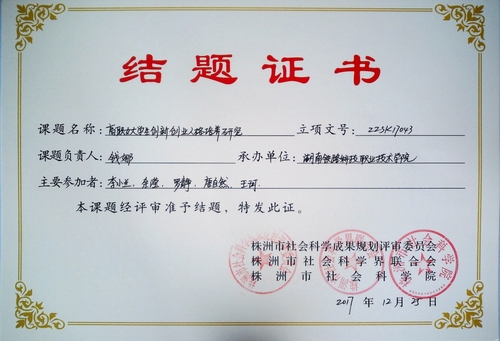 结题证书
课题名称: 高职大学生创新创业人格培养研究 立项文号: ZZSK17043
课题负责人: 钱娜 承办单位: 湖南铁路科技职业技术学院
主要参加者: 李小 罗静、唐自然、王珂
本课题经评审准予结题，特发此证。
株洲市社会科学成果规划评审委员会
株洲市社会科学界联合会
株洲市社会科学院
2017 年 12 月 25 日